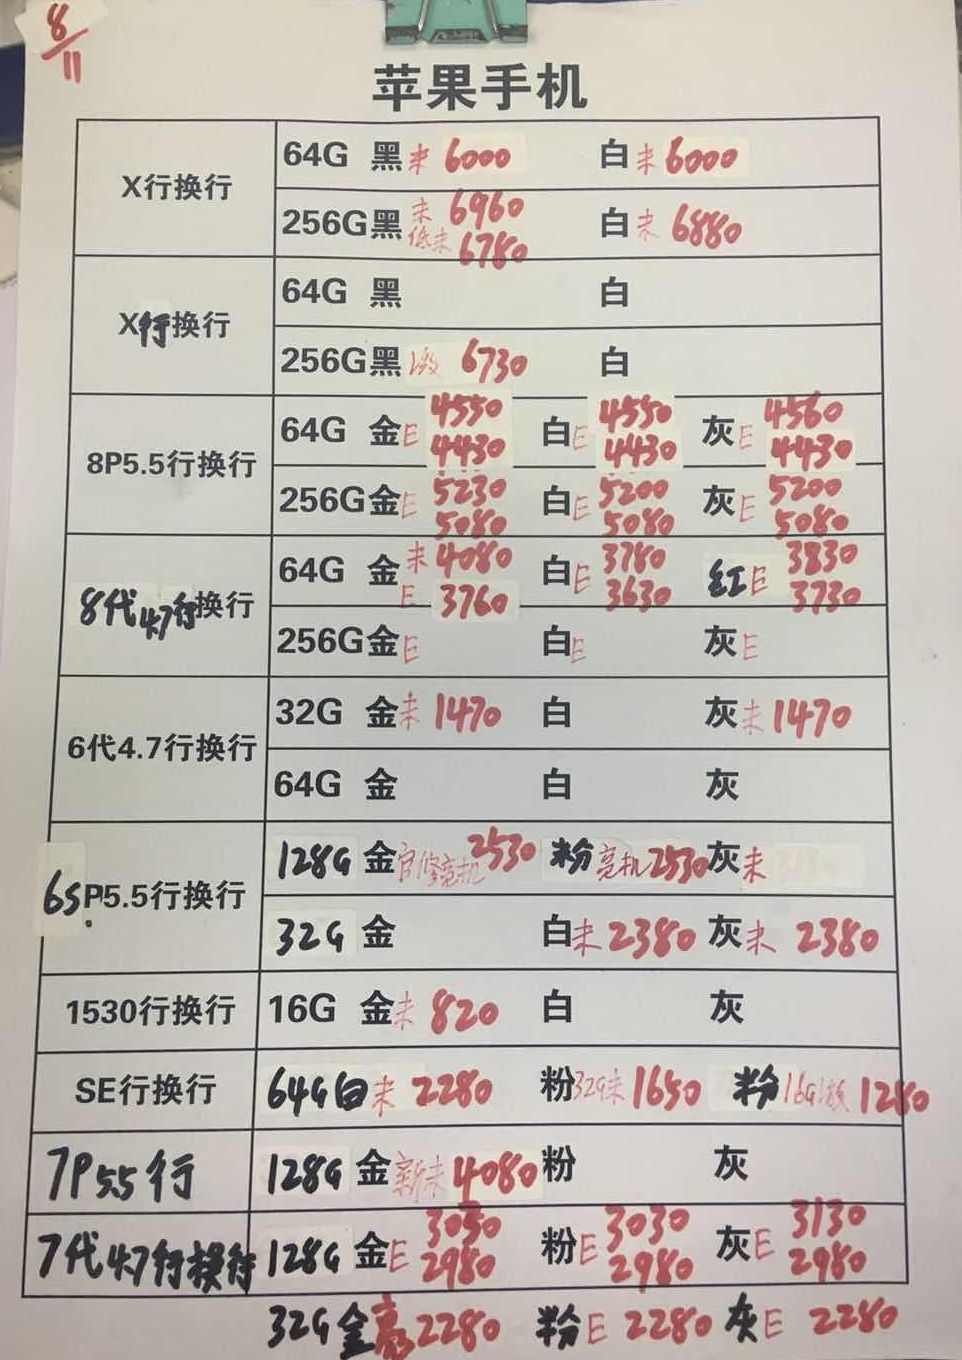 8/11
苹果手机
X行换行
64G 黑 未 6000 白 未 6000
256G 黑 未 6960 白 未 6880
低未 6780
X行换行
64G 黑 白
256G 黑 激 6730 白
8P5.5行换行
64G 金 E 4550 白 E 4550 灰 E 4560
4430 4430 4430
256G 金 E 5230 白 E 5200 灰 E 5200
5080 5080 5080
8代4.7行换行
64G 金 未 4080 白 E 3780 红 E 3830
E 3760 3630 3730
256G 金 E 白 E 灰 E
6代4.7行换行
32G 金 未 1470 白 灰 未 1470
64G 金 白 灰
6SP5.5行换行
128G 金 官修亮机 2530 粉 亮机 2530 灰 未
32G 金 白 未 2380 灰 未 2380
1530行换行
16G 金 未 820 白 灰
SE行换行
64G 白 未 2280 粉 32G未 1650 粉 16G激 1280
7P5.5行
128G 金 新未 4080 粉 灰
7代4.7行换行
128G 金 E 3050 粉 E 3030 灰 E 3130
2980 2980 2980
32G 金 亮 2280 粉 E 2280 灰 E 2280